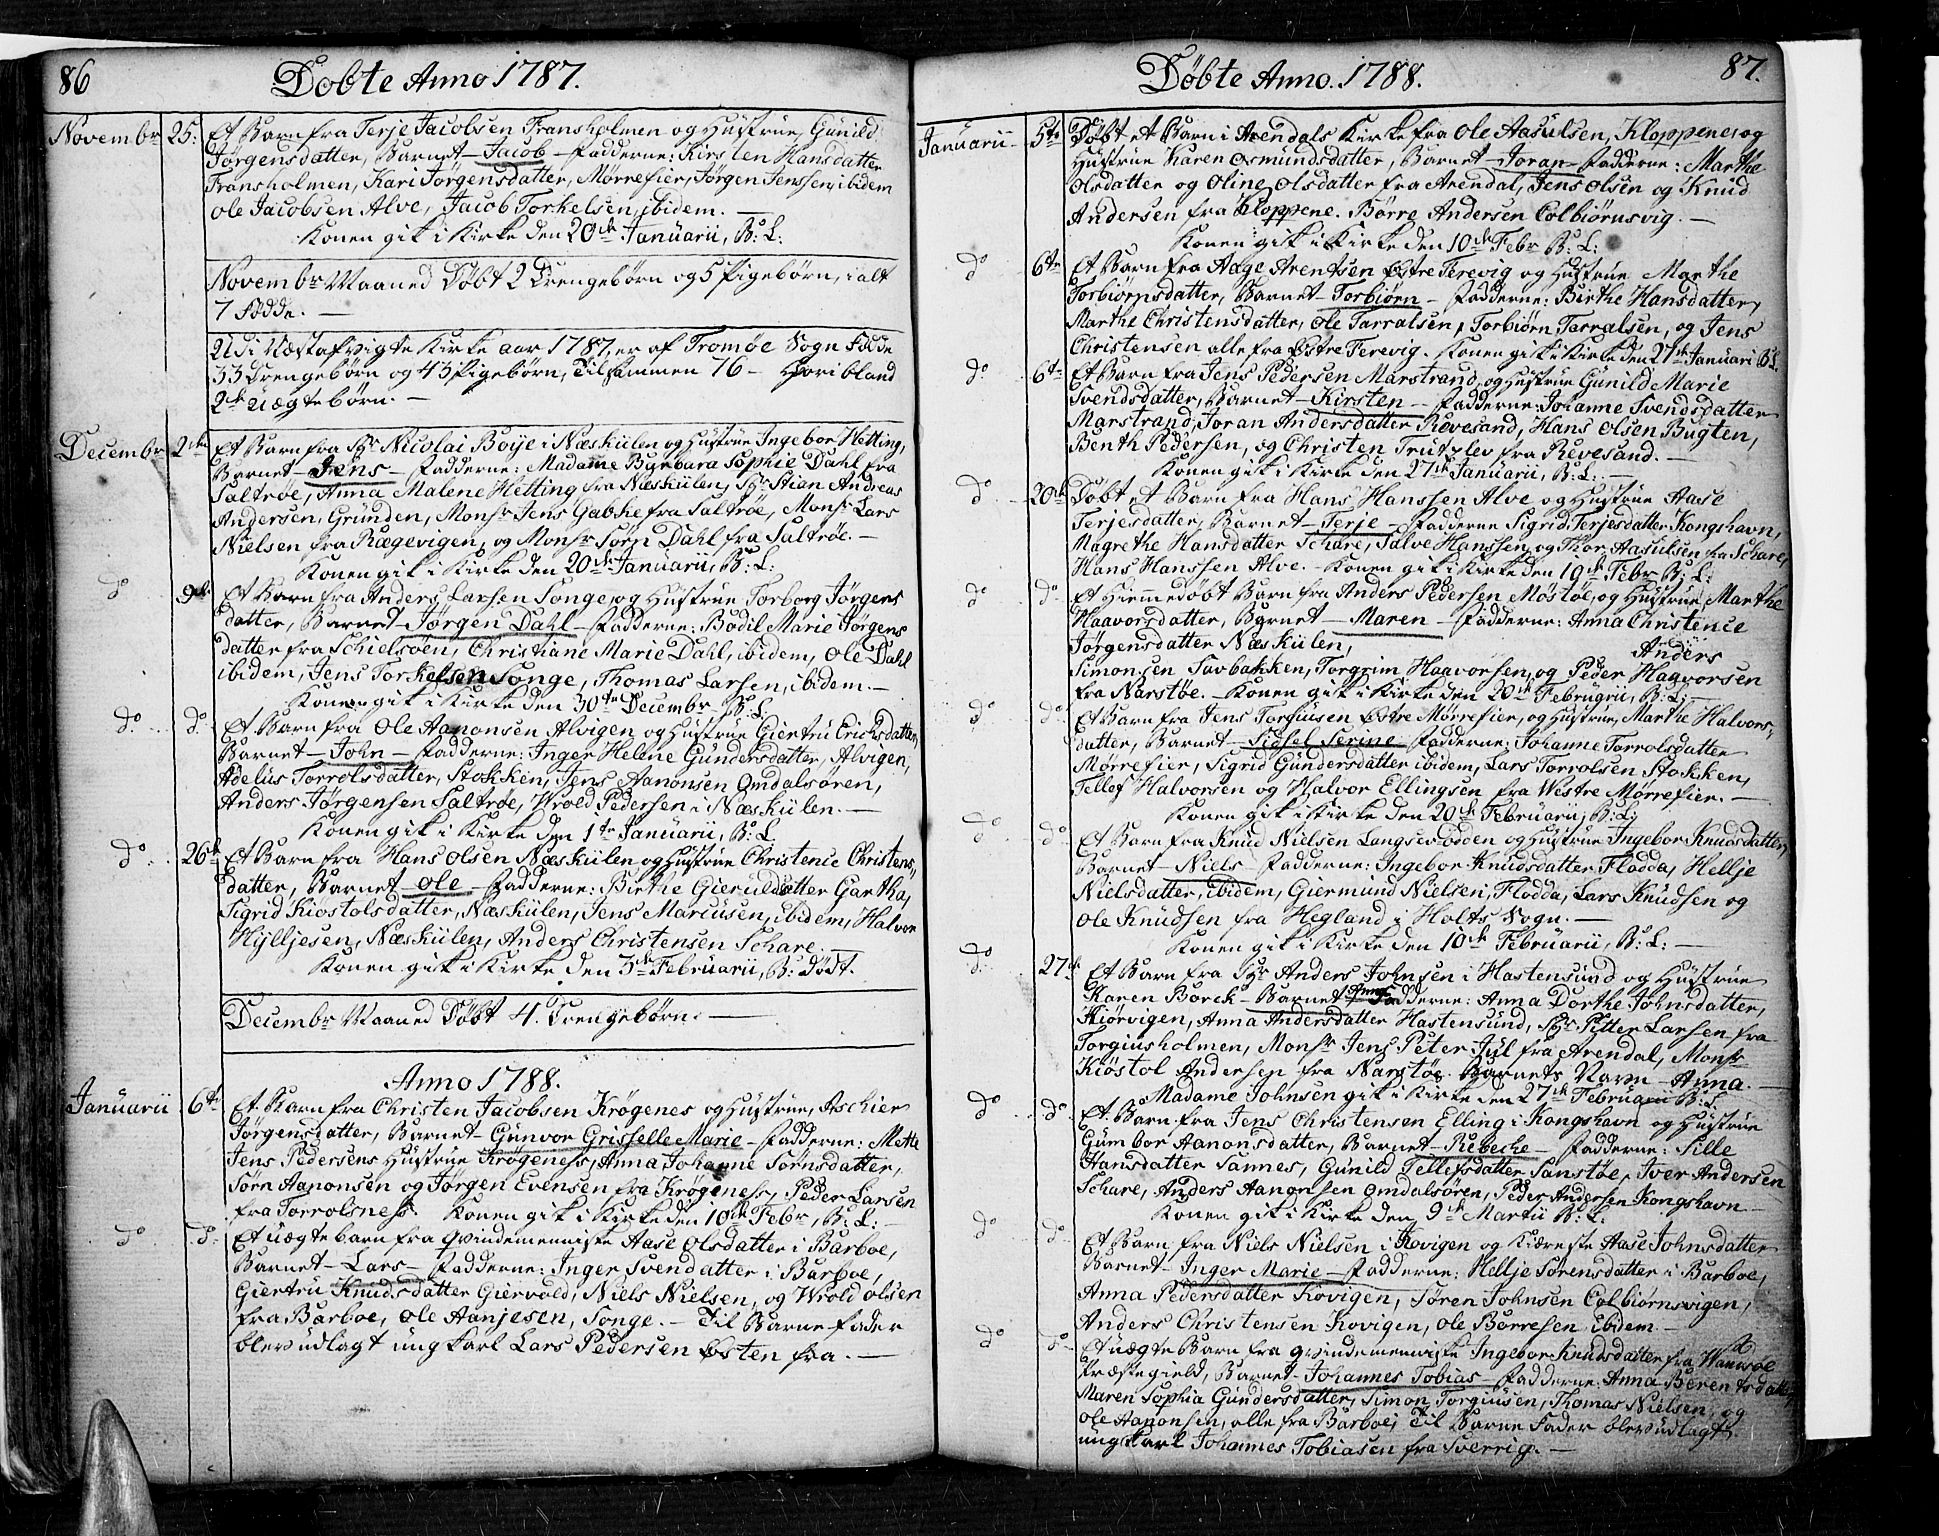 86
Døbte Anno 1787.
Novembr 25. Et Barn fra Terje Jacobsen Fransholmen og Hustrue Gunild
Jørgensdatter, Barnet - Jacob - Fadderne: Kirsten Hansdatter
Fransholmen, Kari Jørgensdatter, Mørrefier, Jørgen Jenssen, ibidem
Ole Jacobsen Alve, Jacob Torkelsen, ibidem. -
Konen gik i Kirke den 20de Januarii, B: L:
Novembr Maaned Døbt 2 Drengebørn og 5 Pigebørn, i alt
7 Fødde. -
Udi Næstafvigte Kirke aar 1787, er af Tromøe Sogn Fødde
33 Drengebørn og 43 Pigebørn, Tilsammen 76 - Hvoribland
2de Uægtebørn. -
Decembr 2den Et Barn fra Sr Nicolai Boye i Næskilen og Hustrue Ingebor Hetting,
Barnet - Jens - Fadderne: Madame Barbara Sophie Dahl fra
Saltrøe, Anna Malene Hetting fra Næskilen, Sr Stian Andreas
Andersen, Gründen, Monsr Jens Gabke fra Saltrøe, Monsr Lars
Nielsen fra Rægevigen, og Monsr Sørn Dahl fra Saltrøe. -
Konen gik i Kirke den 20de Januarii, B: L:
do 9de Et Barn fra Anders Larsen Songe, og Hustrue Torborg Jørgens
datter, Barnet - Jørgen Dahl - Fadderne: Bodil Marie Jørgens
datter fra Schielsøen, Christiane Marie Dahl, ibidem, Ole Dahl
ibidem, Jens Torkelsen Songe, Thomas Larsen, ibidem. -
Konen gik i Kirke den 30te Decembr, B: L.
do. do. Et Barn fra Ole Aanonsen Alvigen og Hustrue Giertru Erichsdatter,
Barnet - John - Fadderne: Inger Helene Gundersdatter, Alvigen,
Adelus Torrolsdatter, Stokken, Jens Aanonsen Omdalsøren,
Anders Jørgensen Saltrøe, Wrold Pedersen i Næskilen. -
Konen gik i Kirke den 1te Januarii, B: L.
do. 26de Et Barn fra Hans Olsen Næskilen og Hustrue Christence Christens,,
datter, Barnet - Ole - Fadderne: Birthe Gieruldsdatter Gartha,
Sigrid Kiøstolsdatter, Næskilen, Jens Marcusen, ibidem, Halvor
Hylljesen, Næskilen, Anders Christensen Schare. -
Konen gik i Kirke den 3de Februarii, B: Dødt.
Decembr Maaned Døbt 4. Drengebørn. -
Anno 1788.
Januarii 6te Et Barn fra Christen Jacobsen Krøgenes og Hustrue, Aschier
Jørgensdatter, Barnet - Gunvor Grisselle Marie - Fadderne: Mette
Jens Pedersens Hustrue Krøgeness, Anna Johanne Sørnsdatter,
Sørn Aanonsen og Jørgen Evensen fra Krøgeness, Peder Larsen
fra Torrolsness. Konen gik i Kirke den 10de Febr, B: L: -
do do. Et uægte barn fra qvindemenniske Aase Olsdatter i Barboe,
Barnet - Lars - Fadderne: Inger Svendatter i Barboe,
Giertru Knudsdatter Giervold, Niels Nielsen, og Wrold Olsen
fra Barboe, Ole Aanjesen, Songe. - Til Barne fader
blev udlagt ung karl Lars Pedersen Østen fra. -
87.
Døbte Anno. 1788.
Januarii 5te Døbt et Barn i Arendals Kirke fra Ole Aasulsen, Kloppene, og
Hustrue Karen Osmundsdatter, Barnet - Joran - Fadderne: Marthe
Olsdatter og Oline Olsdatter fra Arendal, Jens Olsen og Knud
Andersen fra Kloppene. Børre Andersen Colbiørnsvig. -
Konen gik i Kirke den 10de Febr B: L:
do 6te Et Barn fra Aage Arentsen Østre Terevig og Hustrue Marthe
Torbiørnsdatter, Barnet - Torbiørn - Fadderne: Birthe Hansdatter,
Marthe Christensdatter, Ole Tarralsen, Torbiørn Tarralsen, og Jens
Christensen alle fra Østre Terevig. Konen gik i Kirke den 27de Januari B: L.
do. 6te Et Barn fra Jens Pedersen Marstrand, og Hustrue Gunild Marie
Svendsdatter, Barnet - Kirsten - Fadderne: Johanne Svendsdatter
Marstrand, Joran Andersdatter Revesand, Hans Olsen Bugten,
Benth Pedersen, og Christen Trutzlev fra Revesand. -
Konen gik i Kirke den 27de Januarii, B: L: -
do 20de Døbt et Barn fra Hans Hanssen Alve og Hustrue Aase
Terjesdatter, Barnet - Terje - Fadderne Sigrid Terjesdatter Kongshavn,
Magrethe Hansdatter Schare, Salve Hanssen, og Thor Aasulsen fra Schare,
Hans Hanssen Alve. - Konen gik i Kirke den 10de Febr B: L:
do do. Et Hiemedøbt Barn fra Anders Pedersen Møstøe, og Hustrue Marthe
Haavorsdatter, Barnet - Maren - Fadderne: Anna Christence
Jørgensdatter Næskilen, Anders
Simonsen Savbakken, Torgrim Haavorsen, og Peder Haavorsen
fra Narstøe. - Konen gik i Kirke den 20de Februarii, B: L: -
do do. Et Barn fra Jens Torjusen Østre Mørrefier, og Hustrue, Marthe Halvors,,
datter, Barnet - Sidsel Serine Fadderne: Johanne Torrolsdatter
Mørrefier, Sigrid Gundersdatter ibidem, Lars Torrolsen Stokken,
Tellef Halvorsen og Halvor Ellingsen fra Westre Mørrefier. -
Konen gik i Kirke den 20de Februarii, B: L:
do do Et Barn fra Knud Nielsen Langsevodden og Hustrue Ingebor Knudsdatter,
Barnet - Niels - Fadderne: Ingebor Knudsdatter Flodda, Hellje
Nielsdatter, ibidem, Giermund Nielsen, Flodda, Lars Knudsen og
Ole Knudsen fra Hegland i Holts Sogn. -
Konen gik i Kirke den 10de Februarii, B: L: -
do. 27de Et Barn fra Sr Anders Johnsen i Hastensund og Hustrue
Karen Borck - Barnet Anna Fadderne: Anna Dorthe Johnsdatter,
Kiørvigen, Anna Andersdatter Hastensund, Sr Pitter Larsen fra
Torgiusholmen, Monsr Jens Peter Jul fra Arendal, Monsr
Kiøstol Andersen fra Narstøe. Barnets Navn - Anna. -
Madame Johnsen gik i Kirke den 27de Februarii B: L.
do do Et Barn fra Jens Christensen Elling i Kongshavn og Hustrue
Gumbor Aanonsdatter, Barnet - Rebecke - Fadderne: Sille
Hansdatter Sannes, Gunild Tellefsdatter Sanstøe, Iver Andersen
Schare, Anders Aanonsen Omdalsøren, Peder Andersen Kongshavn -
Konen gik i Kirke den 9de Martii B: L:
do do Et Barn fra Niels Nielsen i Kovigen og Kiæreste Aase Johnsdatter
Barnet - Inger Marie - Fadderne: Hellje Sørensdatter i Barboe,
Anna Pedersdatter Kovigen, Søren Johnsen Colbiørnsvigen,
Anders Christensen Kovigen, Ole Børresen ibidem -
do do Et uægte Barn fra qvindemenniske Ingebor Knudsdatter fra Wandsøe
Præstegield, Barnet - Johannes Tobias - Fadderne: Anna Berentsdatter
Maren Sophia Gundersdatter, Simon Torgiusen, Thomas Nielsen, og
Ole Aanonsen, alle fra Barboe, Til Barne Fader blev udlagt
ung karl Johannes Tobiasen fra Sverrig. -